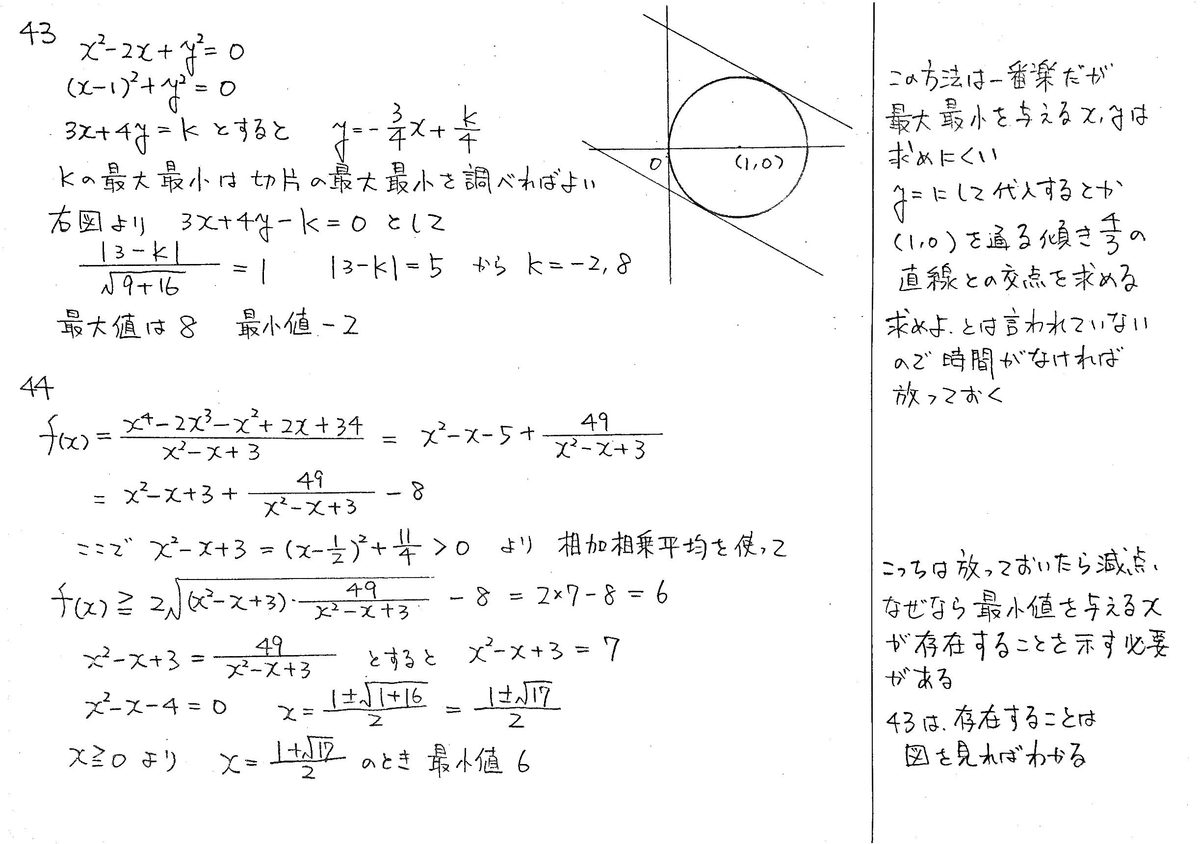 43
x²-2x+y²=0
(x-1)²+y²=0
3x+4y=k とすると y=-3/4x+k/4
kの最大最小は切片の最大最小を調べればよい
右図より 3x+4y-k=0 として
|3-k|/√(9+16) = 1 |3-k|=5 から k=-2,8
最大値は8 最小値-2
0
(1,0)
44
f(x)=(x⁴-2x³-x²+2x+34)/(x²-x+3) = x²-x-5+49/(x²-x+3)
= x²-x+3+49/(x²-x+3)-8
ここで x²-x+3=(x-1/2)²+11/4>0 より 相加相乗平均を使って
f(x)≧2√((x²-x+3)・49/(x²-x+3))-8=2×7-8=6
x²-x+3=49/(x²-x+3) とすると x²-x+3=7
x²-x-4=0 x=(1±√(1+16))/2=(1±√17)/2
x≧0より x=(1+√17)/2 のとき 最小値6
この方法は一番楽だが
最大最小を与えるx,yは
求めにくい
y=にして代入するとか
(1,0)を通る傾き4/3の
直線との交点を求める
求めよ.とは言われていない
ので時間がなければ
放っておく
こっちは放っておいたら減点、
なぜなら最小値を与えるx
が存在することを示す必要
がある
43は.存在することは
図を見ればわかる